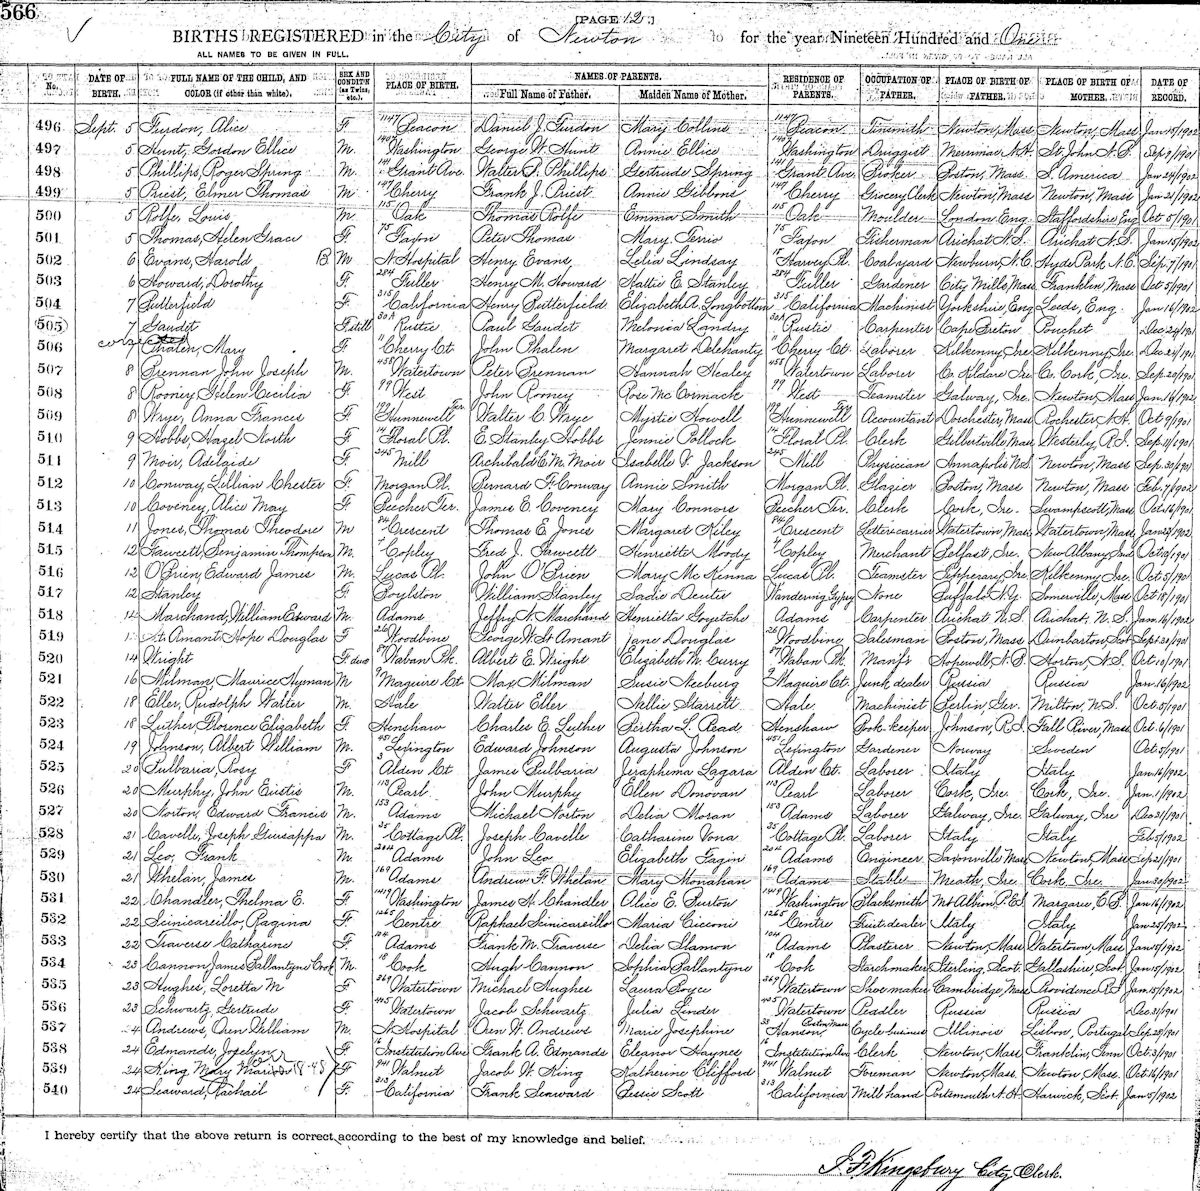 566
[PAGE 12.]
BIRTHS REGISTERED in the City of Newton for the year Nineteen Hundred and One
ALL NAMES TO BE GIVEN IN FULL.
No. DATE OF BIRTH. FULL NAME OF THE CHILD, AND COLOR (if other than white). SEX AND CONDIT'N (as Twins, etc.). PLACE OF BIRTH. NAMES OF PARENTS. Full Name of Father. Maiden Name of Mother. RESIDENCE OF PARENTS. OCCUPATION OF FATHER. PLACE OF BIRTH OF FATHER. PLACE OF BIRTH OF MOTHER. DATE OF RECORD.
496 Sept. 5 Furdon, Alice F. 1147 Beacon Daniel J. Furdon Mary Collins 1147 Beacon Tinsmith Newton, Mass Newton, Mass Jan 15/1902
497 5 Hunt, Gordon Ellice M. Washington George W. Hunt Annie Ellice Washington Druggist Merrimac N.H. St. John N.B. Sep 9/1901
498 5 Phillips, Roger Spring M. 141 Grant Ave. Walter B. Phillips Gertrude Spring 141 Grant Ave. Broker Boston, Mass S. America Jan 24/1902
499 5 Priest, Elmer Thomas M. 149 Cherry Frank J. Priest Annie Gibbons 149 Cherry Grocery Clerk Newton, Mass Newton, Mass Jan 21/1902
500 5 Rolfe, Louis M. 115 Oak Thomas Rolfe Emma Smith 115 Oak Moulder London Eng. Staffordshire Eng Oct 5/1901
501 5 Thomas, Helen Grace F. 75 Faxon Peter Thomas Mary Terrio 75 Faxon Fisherman Arichat N.S. Arichat N.S. Jan 15/1902
502 6 Evans, Harold B M. N. Hospital Henry Evans Lelia Lindsay Harvey Pl. Coalyard Newburn, N.C. Hyde Park N.C. Sep. 7/1901
503 6 Howard, Dorothy F. 284 Fuller Henry M. Howard Hattie E. Stanley 284 Fuller Gardener City Mills, Mass Franklin, Mass Oct 5/1901
504 7 Butterfield F. 315 California Henry Butterfield Elizabeth A. Longbottom 315 California Machinist Yorkshire, Eng Leeds, Eng. Jan 16/1902
505 7 Gaudet F. still 30A Rustic Paul Gaudet Melonica Landry 30A Rustic Carpenter Cape Breton Pouchet Dec 24/1901
506 7 Phalen, Mary F 11 Cherry Ct John Phalen Margaret Delehanty 11 Cherry Ct. Laborer Kilkenny, Ire. Kilkenny, Ire. Dec 24/1901
507 8 Brennan John Joseph M. 458 Watertown Peter Brennan Hannah Healey 458 Watertown Laborer Co. Kildare Ire Co. Cork Ire. Sep. 20/1901
508 8 Rooney Helen Cecilia F. 99 West John Rooney Rose McCormack 99 West Teamster Galway, Ire Newton, Mass Jan. 16/1902
509 8 Wrye, Anna Frances F. 199 Hunnewell Ter. Walter C. Wrye Myrtie Howell 199 Hunnewell Ter Accountant Dorchester, Mass Rochester N.H. Oct 9/1901
510 9 Hobbs, Hazel North F. 14 Floral Pl. E. Stanley Hobbs Jennie Pollock 14 Floral Pl. Clerk Gilbertville, Mass Westerly, R.I. Sep. 11/1901
511 9 Moir, Adelaide F. 245 Mill Archibald C. M. Moir Isabelle F. Jackson 245 Mill Physician Annapolis N.S. Newton, Mass Sep. 30/1901
512 10 Conway, Lillian Chester F. Morgan Pl. Bernard F. Conway Annie Smith Morgan Pl. Glazier Boston, Mass Newton, Mass Feb. 7/1902
513 10 Coveney, Alice May F. Beecher Ter. James E. Coveney Mary Connors Beecher Ter. Clerk Cork, Ire. Swampscott, Mass Oct. 16/1901
514 11 Jones, Thomas Theodore M 84 Crescent Thomas E. Jones Margaret Kiley 84 Crescent Letter carrier Watertown, Mass Watertown, Mass Jan 27/1902
515 12 Fawcett, Benjamin Thompson M. 4 Copley Fred J. Fawcett Henriette Moody 4 Copley Merchant Belfast, Ire. New Albany, Ind Oct 10/1901
516 12 O'Brien, Edward James M. Lucas Pl. John O'Brien Mary McKenna Lucas Pl. Teamster Tipperary, Ire Kilkenny, Ire. Oct 5/1901
517 12 Stanley F. Boylston William Stanley Sadie Deuts Wandering Gypsy None Buffalo N.Y. Somerville, Mass Oct 18/1901
518 14 Marchand, William Edward M. Adams Jeffry N. Marchand Henrietta Goyetche Adams Carpenter Arichat N.S. Arichat, N.S. Jan. 16/1902
519 St. Amant, Hope Douglas F. 26 Woodbine George W. St. Amant Jane Douglas 26 Woodbine Salesman Boston, Mass Dumbarton, Scot Sept 21/1901
520 14 Wright F. 87 Waban Pk. Albert E. Wright Elizabeth M. Curry 87 Waban Pk. Manf'r Hopewell, N.B. Horton, N.S. Oct 10/1901
521 16 Milman, Maurice Hyman M 9 Maguire Ct. Max Milman Susie Neeburg 9 Maguire Ct. Junk dealer Russia Russia Jan. 16/1902
522 18 Eller, Rudolph Walter M. Hale Walter Eller Nellie Starrett Hale Machinist Berlin Ger. Milton, N.S. Oct. 5/1901
523 18 Luther, Florence Elizabeth F. Henshaw Charles E. Luther Bertha L. Read Henshaw Book-keeper Johnson, R.I. Fall River, Mass Oct. 6/1901
524 19 Johnson, Albert William M. 451 Lexington Edward Johnson Augusta Johnson 451 Lexington Gardener Norway Sweden Oct. 5/1901
525 20 Bulbaria, Rosy F Alden Ct James Bulbaria Jeraphema Lagara Alden Ct. Laborer Italy Italy Jan. 16/1902
526 20 Murphy, John Eustis M. 113 Pearl John Murphy Ellen Donovan 113 Pearl Laborer Cork, Ire Cork, Ire. Jan. 1/1902
527 20 Norton, Edward Francis M. 153 Adams Michael Norton Delia Moran 153 Adams Laborer Galway, Ire Galway, Ire Dec 31/1901
528 21 Cavelle, Joseph Guisappa M. 35 Cottage Pl. Joseph Cavelle Catharine Vona 35 Cottage Pl. Laborer Italy Italy Feb 5/1902
529 21 Leo, Frank M. 204 Adams John Leo Elizabeth Fagin 204 Adams Engineer Saxonville Mass Newton, Mass Sep 21/1901
530 21 Whelan, James M. 169 Adams Andrew F. Whelan Mary Monahan 169 Adams Stable Meath, Ire Cork, Ire. Jan 30/1902
531 22 Chandler, Thelma E. F. 1419 Washington James H. Chandler Alice E. Burton 1419 Washington Blacksmith Mt Albion, P.E.I Margarie, C.B. Jan 16/1902
532 22 Scinicarsillo, Ragina F. 1265 Centre Raphael Scinicarsillo Maria Cicconi 1265 Centre Fruit dealer Italy Italy Jan 25/1902
533 22 Traverse Catharine F. 104 Adams Frank M. Traverse Delia Slamon 104 Adams Plasterer Newton, Mass Watertown, Mass Jan 15/1902
534 23 Cannon, James Ballantyne Cook M. 18 Cook Hugh Cannon Sophia Ballantyne 18 Cook Starchmaker Sterling, Scot. Gallashire, Scot Jan 15/1902
535 23 Hughes, Loretta M F. 269 Watertown Michael Hughes Laura Joyce 269 Watertown Shoemaker Cambridge, Mass Providence R.I Jan. 15/1902
536 23 Schwartz, Gertrude F. 405 Watertown Jacob Schwartz Julia Linder 405 Watertown Peddler Russia Russia Dec. 31/1901
537 24 Andrews, Oren William M. N. Hospital Oren W. Andrews Marie Josephine 33 Hanson, Boston Mass Cycle business Illinois Lisbon, Portugal Sep 28/1901
538 24 Edmands, Joselyn F. 16 Institution Ave Frank A. Edmands Eleanor Haynes 16 Institution Ave Clerk Newton, Mass Franklin, Tenn Oct. 3/1901
539 24 King, Mary Marion F 941 Walnut Jacob W. King Katherine Clifford 941 Walnut Foreman Newton, Mass Newton, Mass. Oct 16/1901
540 24 Seaward, Rachail F. 313 California Frank Seaward Jessie Scott 313 California Mill hand Portsmouth N.H. Harwick, Scot. Jan 5/1902
I hereby certify that the above return is correct according to the best of my knowledge and belief.
I. F. Kingsbury City Clerk.